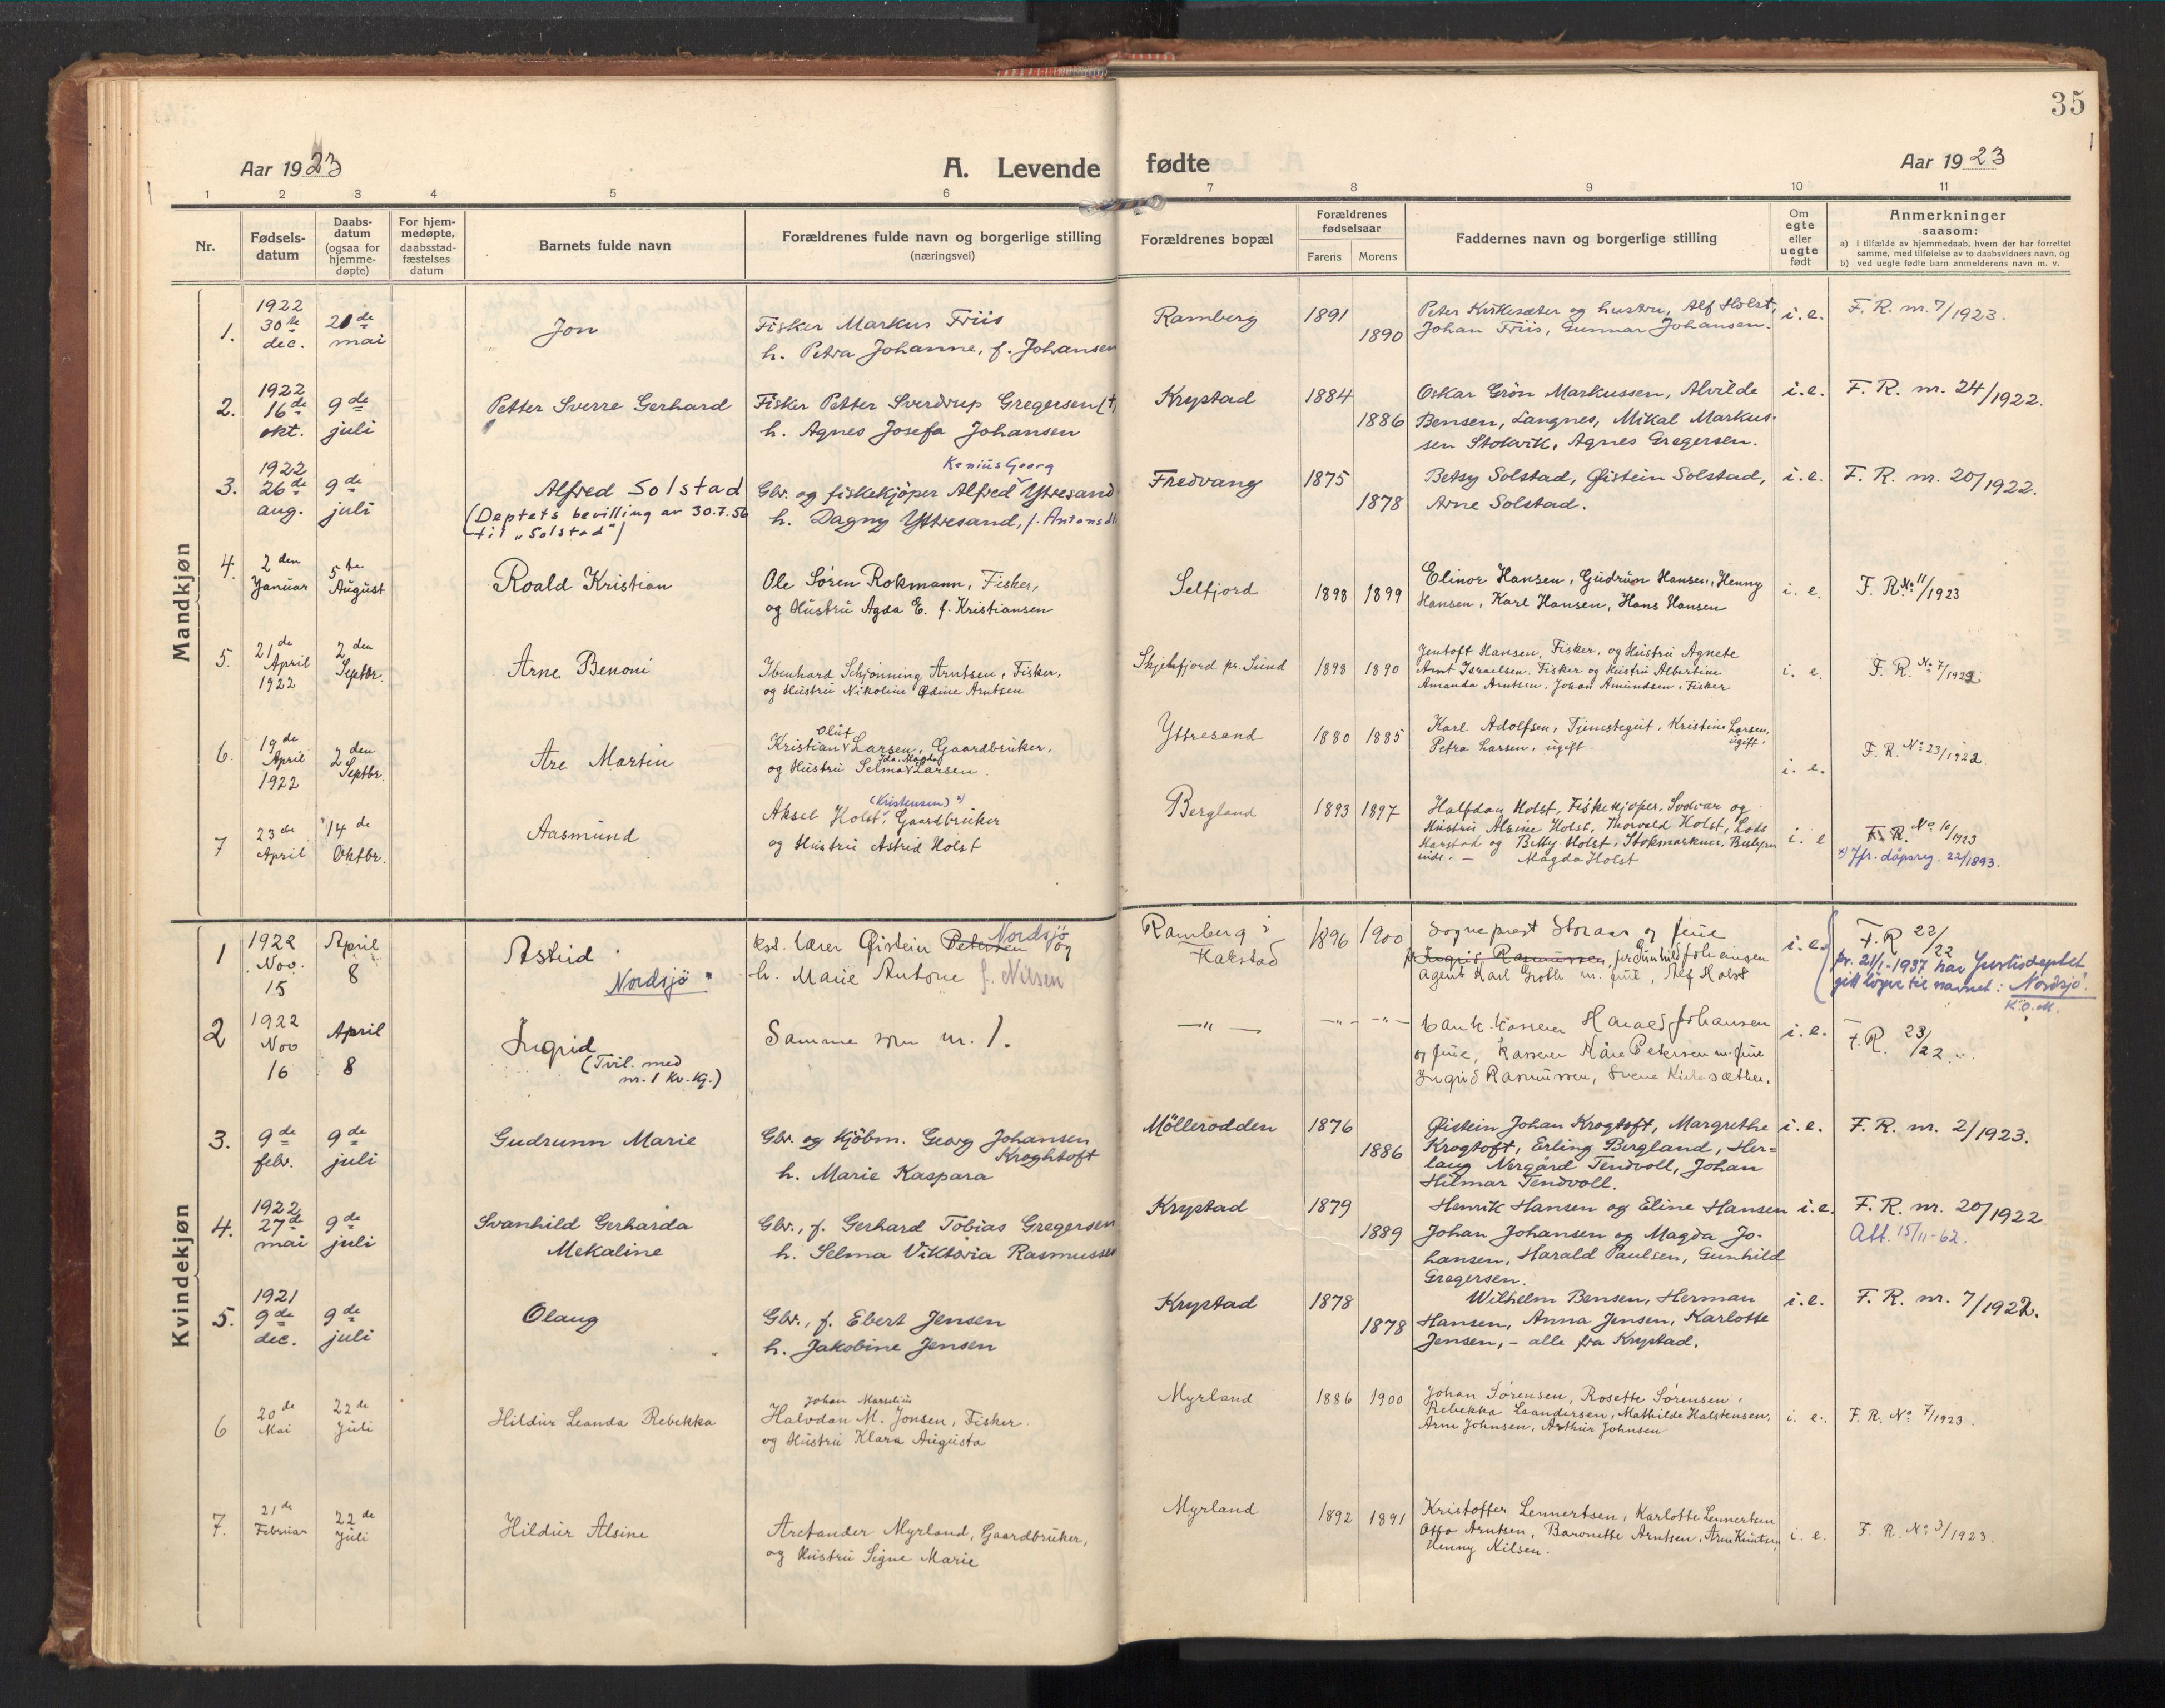 35
Aar 1923
A. Levende fødte
Aar 1923
1 2 3 4 5 6 7 8 9 10 11
Nr.
Fødsels-
datum
Daabs-
datum
(ogsaa for
hjemme-
døpte)
For hjem-
medøpte,
daabsstad-
fæstelses
datum
Barnets fulde navn
Forældrenes fulde navn og borgerlige stilling
(næringsvei)
Forældrenes bopæl
Forældrenes
fødselsaar
Farens Morens
Faddernes navn og borgerlige stilling
Om
egte
eller
uegte
født
Anmerkninger
saasom:
a) i tilfælde av hjemmedaab, hvem der har forrettet
samme, med tilføielse av to daabsvidners navn, og
b) ved uegte fødte barn anmelderens navn m. v.
Mandkjøn
1.
1922
30te
dec.
21de
mai
Jon
Fisker Markus Friis
h. Petra Johanne, f. Johansen
Ramberg
1891
1890
Peter Kirkesæter og hustru, Alf Holst,
Johan Friis, Gunnar Johansen.
i.e.
F. R. nr. 7/1923.
2.
1922
16de
okt.
9de
juli
Petter Sverre Gerhard
Fisker Petter Sverdrup Gregersen (†)
h. Agnes Josefa Johansen
Krystad
1884
1886
Oskar Grön Markussen, Alvilde
Bensen, Langnes, Mikal Markus-
sen Stokvik, Agnes Gregersen.
i.e.
F. R. nr. 24/1922.
3.
1922
26de
aug.
9de
juli
Alfred Solstad
(Deptets bevilling av 30.7.56
til "Solstad")
Kenius Georg
Gbr. og fiskekjöper Alfred Ytresand
h. Dagny Yttresand, f. Antonsdtr
Fredvang
1875
1878
Betsy Solstad, Øistein Solstad,
Arne Solstad.
i.e.
F. R. nr. 20/1922.
4.
2den
Januar
5te
August
Roald Kristian
Ole Søren Rokmann, Fisker,
og Hustru Agda E. f. Kristiansen
Selfjord
1898 1899
Elinor Hansen, Gudrun Hansen, Henny
Hansen, Karl Hansen, Hans Hansen
i. e.
F. R. No 11/1923
5.
21de
April
1922
2den
Septbr.
Arne Benoni
Ibenhard Schjønning Arntsen, Fisker,
og Hustru Nikoline Odine Arntsen
Skjelfjord pr. Sund
1898 1890
Jentoft Hansen, Fisker, og Hustru Agnete
Arnt Israelsen, Fisker og Hustru Albertine
Amanda Arntsen, Johan Amundsen, Fisker
i. e.
F. R. No 7/1922
6.
19de
April
1922
2den
Septbr.
Are Martin
Oluf
Kristian Larsen, Gaardbruker,
Ida. Magda
og Hustru Selma Larsen.
Yttresand
1880 1885
Karl Adolfsen, Tjenestegut, Kristine Larsen,
ugift.
Petra Larsen, ugift.
i. e.
F. R. No 23/1922.
7
23de
April
14de
Oktbr.
Aasmund
(Kristensen) x)
Aksel Holst, Gaardbruker
og Hustru Astrid Holst
Bergland
1893 1897
Halfdan Holst, Fiskekjøper, Svolvær og
Hustru Alvine Holst, Thorvald Holst, Lods
Harstad og Betty Holst, Stokmarknes,
Magda Holst
i. e
F. R. No 10/1923
x) Jfr. dåpsreg. 22/1893.
Kvindekjøn
1
1922
Nov.
15
April
8
Astrid
Nordsjö
kst. lærer Øistein Petersen Nordsjö og
h. Marie Antone f. Nilsen
Ramberg i
Flakstad
1896 1900
Sogneprest Storaas og frue
Ingrid Rasmussen, frk Gunhild Johansen
Agent Karl Grotle m. frue, Alf Holst
i.e.
F. R 22/22
Pr. 21/1-1937 har Justisdeptet
gitt løyve til navnet: Nordsjö.
K.O.M.
2
1922
Nov
16
April
8
Ingrid
(Tvil. med
nr. 1 Kv. kj.)
Samme som nr. 1.
—"— —"— —"—
bank.kasserer Harald Johansen
og frue, kasserer Kåre Petersen m. frue
Ingrid Rasmussen, Svene Kirkesæther.
i.e.
F. R. 23/22.
3.
9de
febr.
9de
juli
Gudrunn Marie
Gbr. og Kjöbm. Georg Johansen
Kroghtoft
h. Marie Kaspara
Möllerodden
1876
1886
Øistein Johan Krogtoft, Margrethe
Krogtoft, Erling Bergland, Her-
laug Nergård Tendvoll, Johan
Hilmar Tendvoll.
i.e.
F. R. nr. 2/1923.
4.
1922
27de
mai
9de
juli
Svanhild Gerharda
Mekaline
Gbr., f. Gerhard Tobias Gregersen
h. Selma Viktoria Rasmussen
Krystad
1879
1889
Henrik Hansen og Eline Hansen
Johan Johansen og Magda Jo-
hansen, Harald Paulsen, Gunhild
Gregersen.
i.e.
F. R. nr. 20/1922
Att. 15/11-62.
5.
1921
9de
dec.
9de
juli
Olaug
Gbr., f. Ebert Jensen
h. Jakobine Jensen
Krystad
1878
1878
Wilhelm Bensen, Herman
Hansen, Anna Jensen, Karlotte
Jensen, - alle fra Krystad.
i.e.
F. R. nr. 7/1922.
6
20de
Mai
22de
Juli
Hildur Leanda Rebekka
Johan Marselius
Halvdan M. Jonsen, Fisker.
og Hustru Klara Augusta
Myrland
1886 1900
Johan Sørensen, Rosette Sørensen,
Rebekka Leandersen, Mathilde Halstensen,
Arne Johnsen, Arthur Johnsen
i. e.
F. R. No 7/1923.
7.
21de
Februar
22de
Juli
Hildur Alsine
Arctander Myrland, Gaardbruker,
og Hustru Signe Marie
Myrland
1892 1891
Kristoffer Lennertsen, Karlotte Lennertsen
Otto Arntsen, Baronette Arntsen, Arne Knutsen,
Henny Nilsen.
i. e.
F. R. No 3/1923.